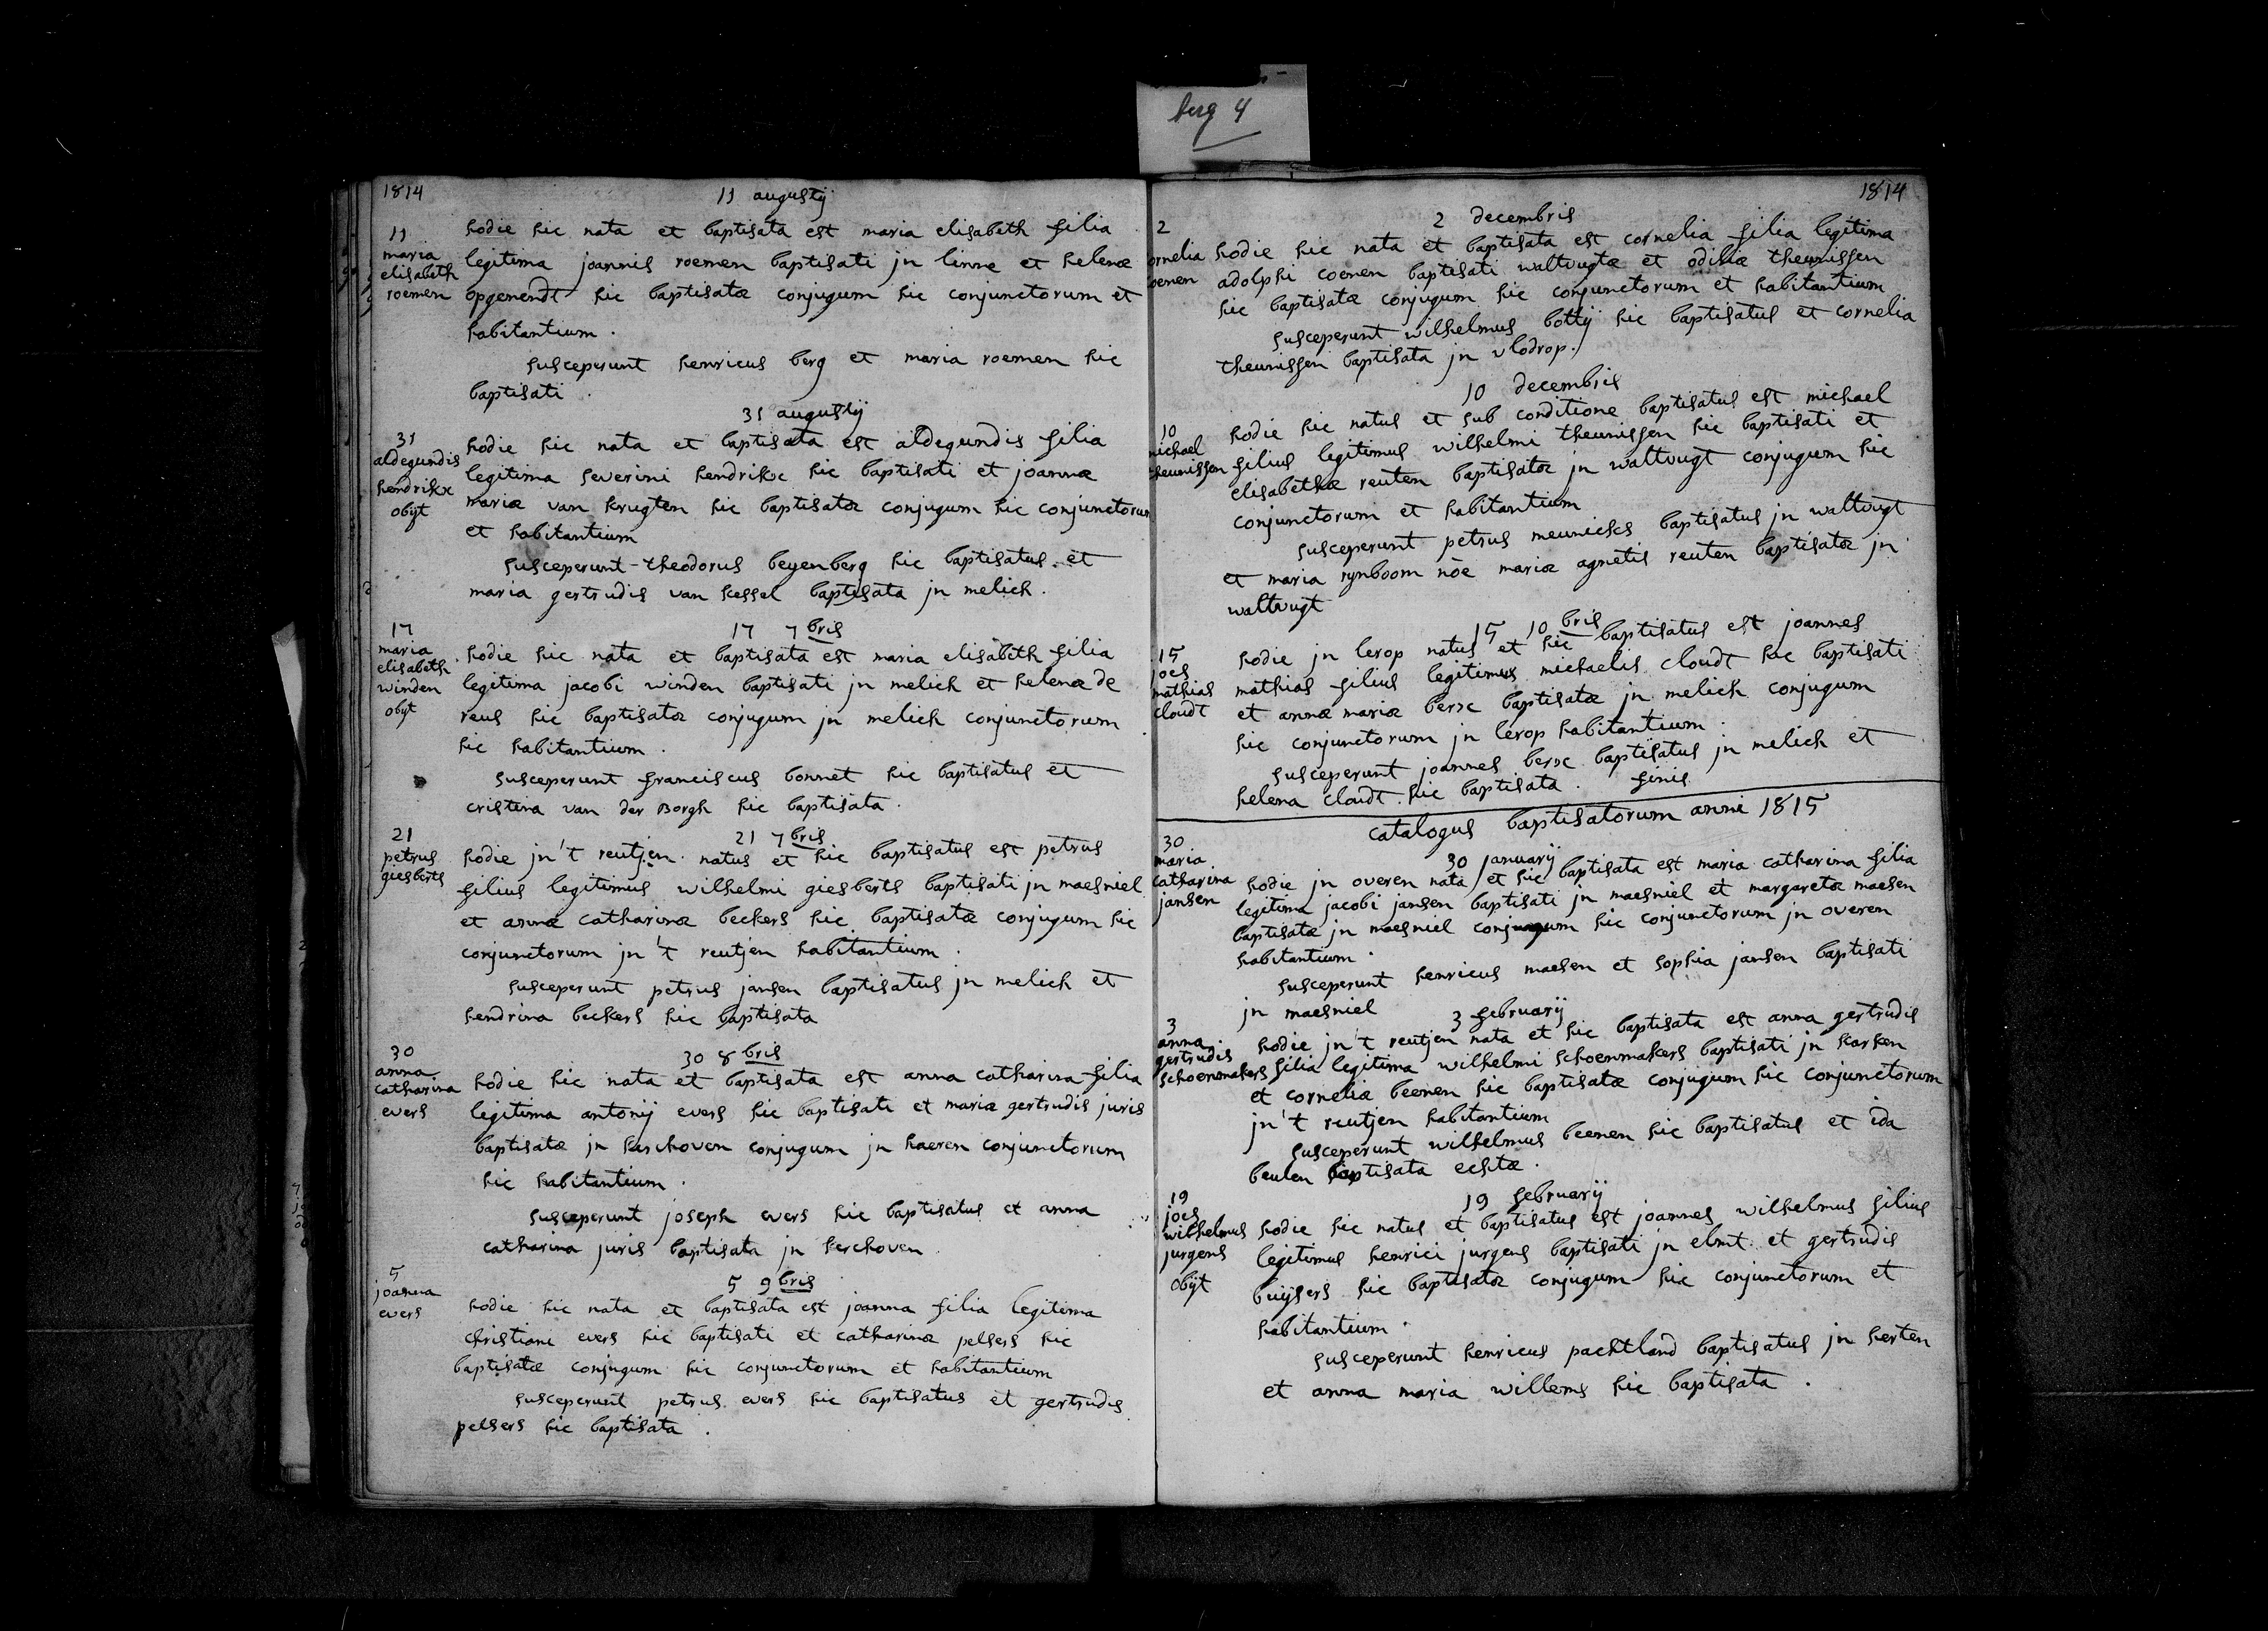 berg 4
1814
11 augustij
11
maria
elisabeth
roemen
hodie hic nata et baptisata est maria elisabeth filia
legitima joannis roemen baptisati jn linne et helenæ
opgenendt hic baptisatæ conjugum hic conjunctorum et
habitantium.
susceperunt henricus berg et maria roemen hic
baptisati.
31 augustij
31
aldegundis
hendrikx
obijt
hodie hic nata et baptisata est aldegundis filia
legitima severini hendrikx hic baptisati et joannæ
mariæ van krugten hic baptisatæ conjugum hic conjunctorum
et habitantium
susceperunt theodorus beyenberg hic baptisatus et
maria gertrudis van kessel baptisata jn melick.
17 7bris
17
maria
elisabeth
winden
obijt
hodie hic nata et baptisata est maria elisabeth filia
legitima jacobi winden baptisati jn melick et helenæ de
reus hic baptisatæ conjugum jn melick conjunctorum
hic habitantium.
susceperunt franciscus bonnet hic baptisatus et
cristina van der Borgh hic baptisata.
21 7bris
21
petrus
giesberts
hodie jn't reutjen natus et hic baptisatus est petrus
filius legitimus wilhelmi giesberts baptisati jn maesniel
et annæ catharinæ beckers hic baptisatæ conjugum hic
conjunctorum jn't reutjen habitantium.
susceperunt petrus jansen baptisatus jn melick et
hendrina beckers hic baptisata
30 8bris
30
anna
catharina
evers
hodie hic nata et baptisata est anna catharina filia
legitima antonij evers hic baptisati et mariæ gertrudis juris
baptisatæ jn kerchoven conjugum jn haeren conjunctorum
hic habitantium.
susceperunt joseph evers hic baptisatus et anna
catharina juris baptisata jn kerchoven.
5 9bris
5
joanna
evers
hodie hic nata et baptisata est joanna filia legitima
christiani evers hic baptisati et catharinæ pelsers hic
baptisatæ conjugum hic conjunctorum et habitantium
susceperunt petrus evers hic baptisatus et gertrudis
pelsers hic baptisata.
1814
2 decembris
2
ornelia
oenen
hodie hic nata et baptisata est cornelia filia legitima
adolphi coenen baptisati waltvugtæ et odiliæ theunissen
hic baptisatæ conjugum hic conjunctorum et habitantium
susceperunt wilhelmus bottij hic baptisatus et cornelia
theunissen baptisata jn vlodrop.
10 decembris
10
michael
theunissen
hodie hic natus et sub conditione baptisatus est michael
filius legitimus wilhelmi theunissen hic baptisati et
elisabethæ reuten baptisatæ jn waltvugt conjugum hic
conjunctorum et habitantium
susceperunt petrus baptisatus jn waltvugt
et maria rynboom nõe mariæ agnetis reuten baptisatæ jn
waltvugt
15 10bris
15
joes
mathias
cloudt
hodie jn lerop natus et hic baptisatus est joannes
mathias filius legitimus michaelis cloudt hic baptisati
et annæ mariæ berx baptisatæ jn melick conjugum
hic conjunctorum jn lerop habitantium.
susceperunt joannes berx baptisatus jn melick et
helena cloudt hic baptisata. finis
catalogus baptisatorum anni 1815
30 januarij
30
maria
catharina
jansen
hodie jn overen nata et hic baptisata est maria catharina filia
legitima jacobi jansen baptisati jn maesniel et margaretæ maesen
baptisatæ jn maesniel conjugum hic conjunctorum jn overen
habitantium.
susceperunt henricus maesen et sophia jansen baptisati
jn maesniel
3 februarij
3
anna
gertrudis
schoenmakers
hodie jn't reutjen nata et hic baptisata est anna gertrudis
filia legitima wilhelmi schoenmakers baptisati jn karken
et corneliæ beenen hic baptisatæ conjugum hic conjunctorum
jn't reutjen habitantium
susceperunt wilhelmus beenen hic baptisatus et ida
beulen baptisata echtæ.
19 februarij
19
joes
wilhelmus
jurgens
obijt
hodie hic natus et baptisatus est joannes wilhelmus filius
legitimus henrici jurgens baptisati jn elmt et gertrudis
buijsers hic baptisatæ conjugum hic conjunctorum et
habitantium.
susceperunt henricus pachtland baptisatus jn herten
et anna maria willems hic baptisata.